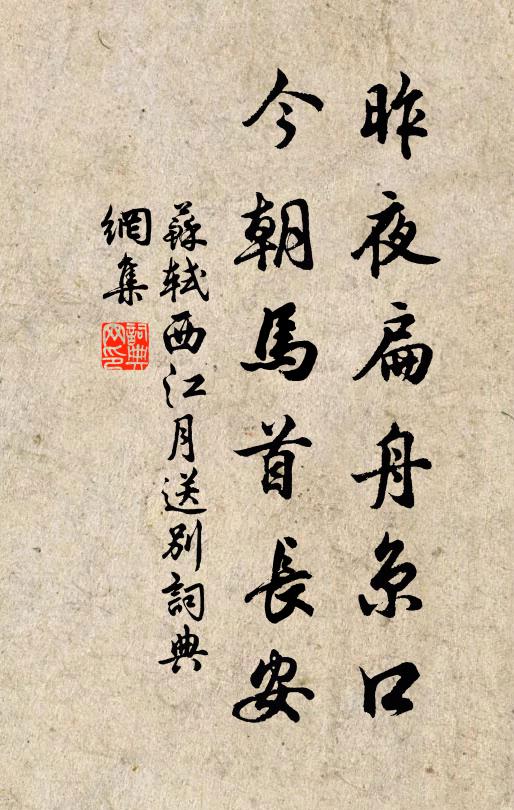 昨夜扁舟京口
今朝馬首長安
蘇軾西江月送別詞典
網集
詞典
网印